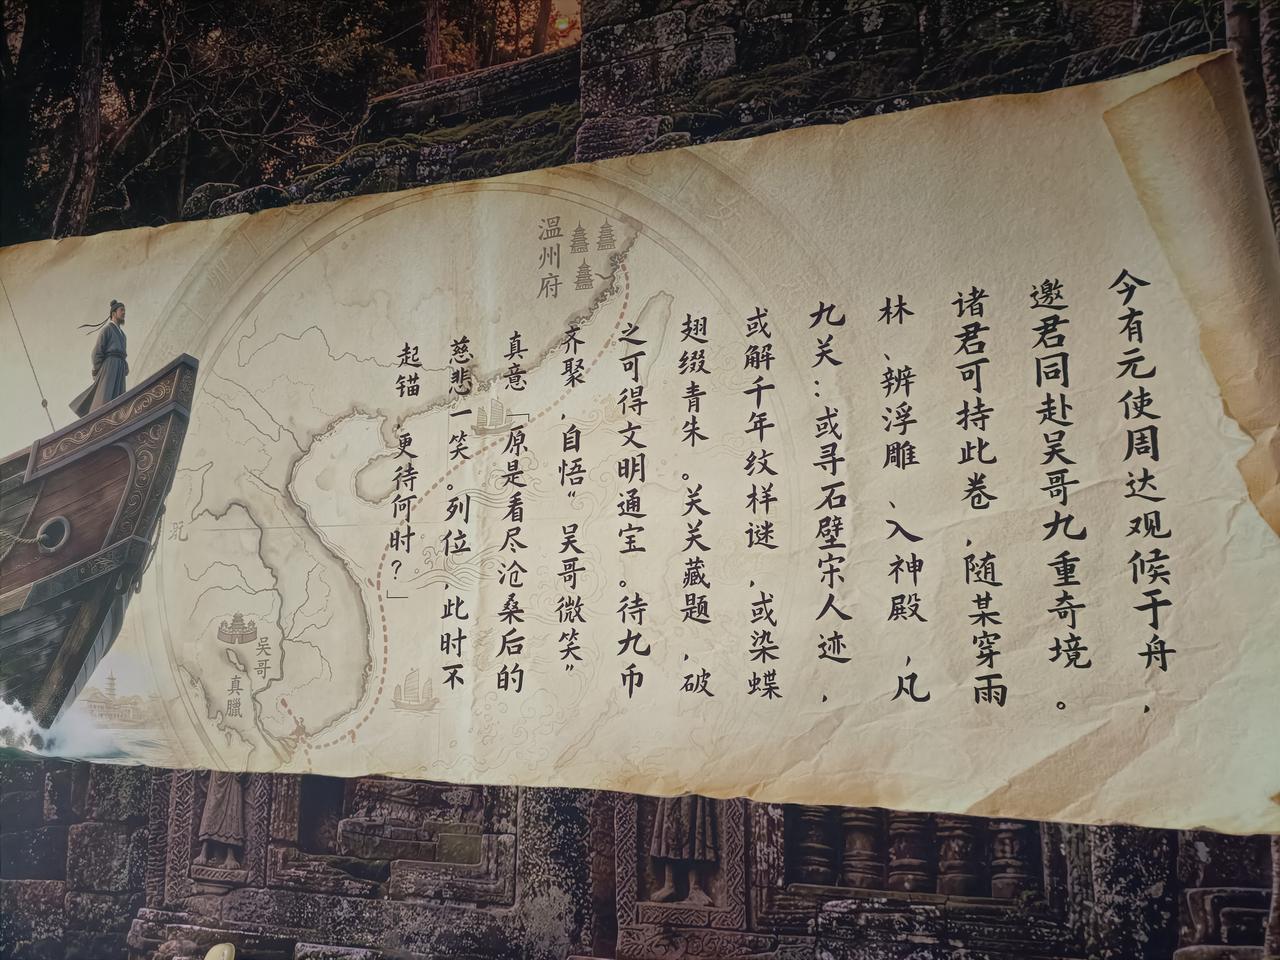 今有元使周达观候于舟，
邀君同赴吴哥九重奇境。
诸君可持此卷，随某穿雨
林、辨浮雕、入神殿，凡
九关：或寻石壁宋人迹，
或解千年纹样谜，或染蝶
翅缀青朱。关关藏题，破
之可得文明通宝。待九币
齐聚，自悟“吴哥微笑”
真意「原是看尽沧桑后的
慈悲一笑。列位，此时不
起锚，更待何时？」
溫州府
吴哥
真臘